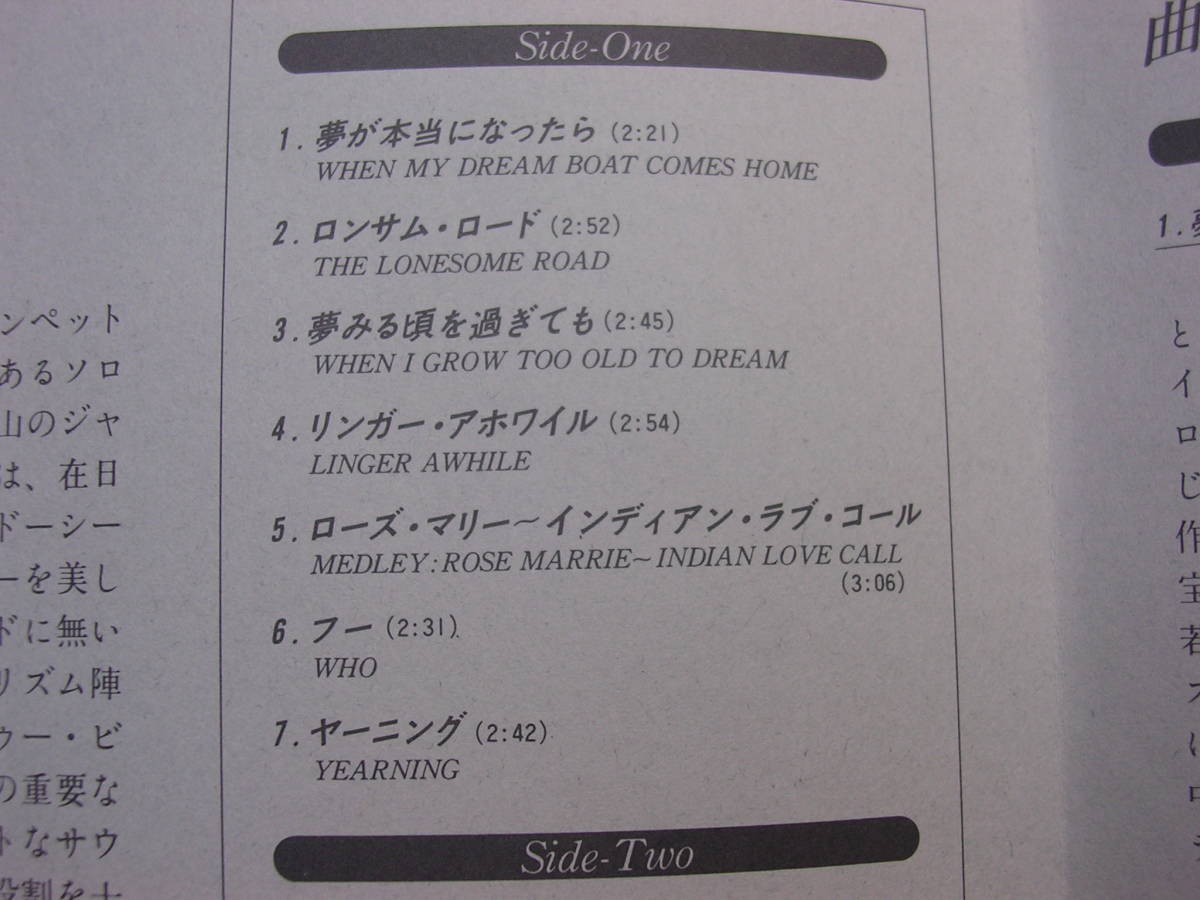 ンペット
あるソロ
山のジャ
は、在日
ドーシー
ーを美し
ドに無い
リズム陣
ゥー・ビ
の重要な
トなサウ
役割を十
Side-One
1. 夢が本当になったら (2:21)
WHEN MY DREAM BOAT COMES HOME
2. ロンサム・ロード (2:52)
THE LONESOME ROAD
3. 夢みる頃を過ぎても (2:45)
WHEN I GROW TOO OLD TO DREAM
4. リンガー・アホワイル (2:54)
LINGER AWHILE
5. ローズ・マリー~インディアン・ラブ・コール
MEDLEY: ROSE MARRIE~INDIAN LOVE CALL
(3:06)
6. フー (2:31)
WHO
7. ヤーニング (2:42)
YEARNING
Side-Two
曲
1. 夢
と
イ
ロ
じ
作
宝
若